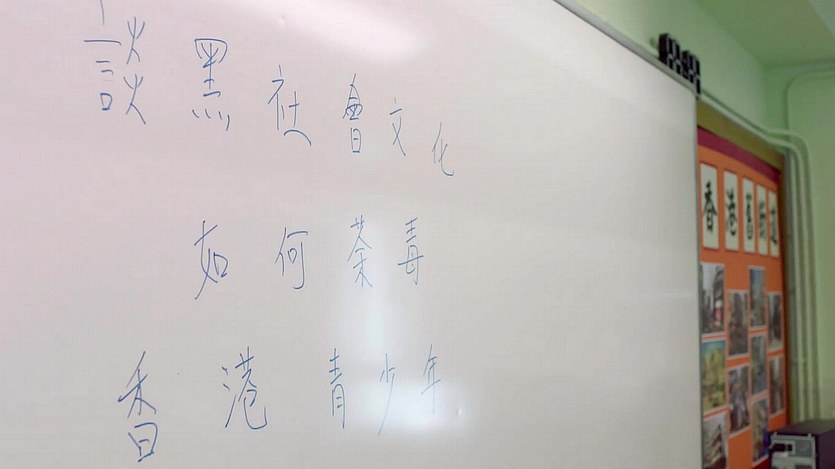 談黑社會文化
如何荼毒
香港青少年
香港舊